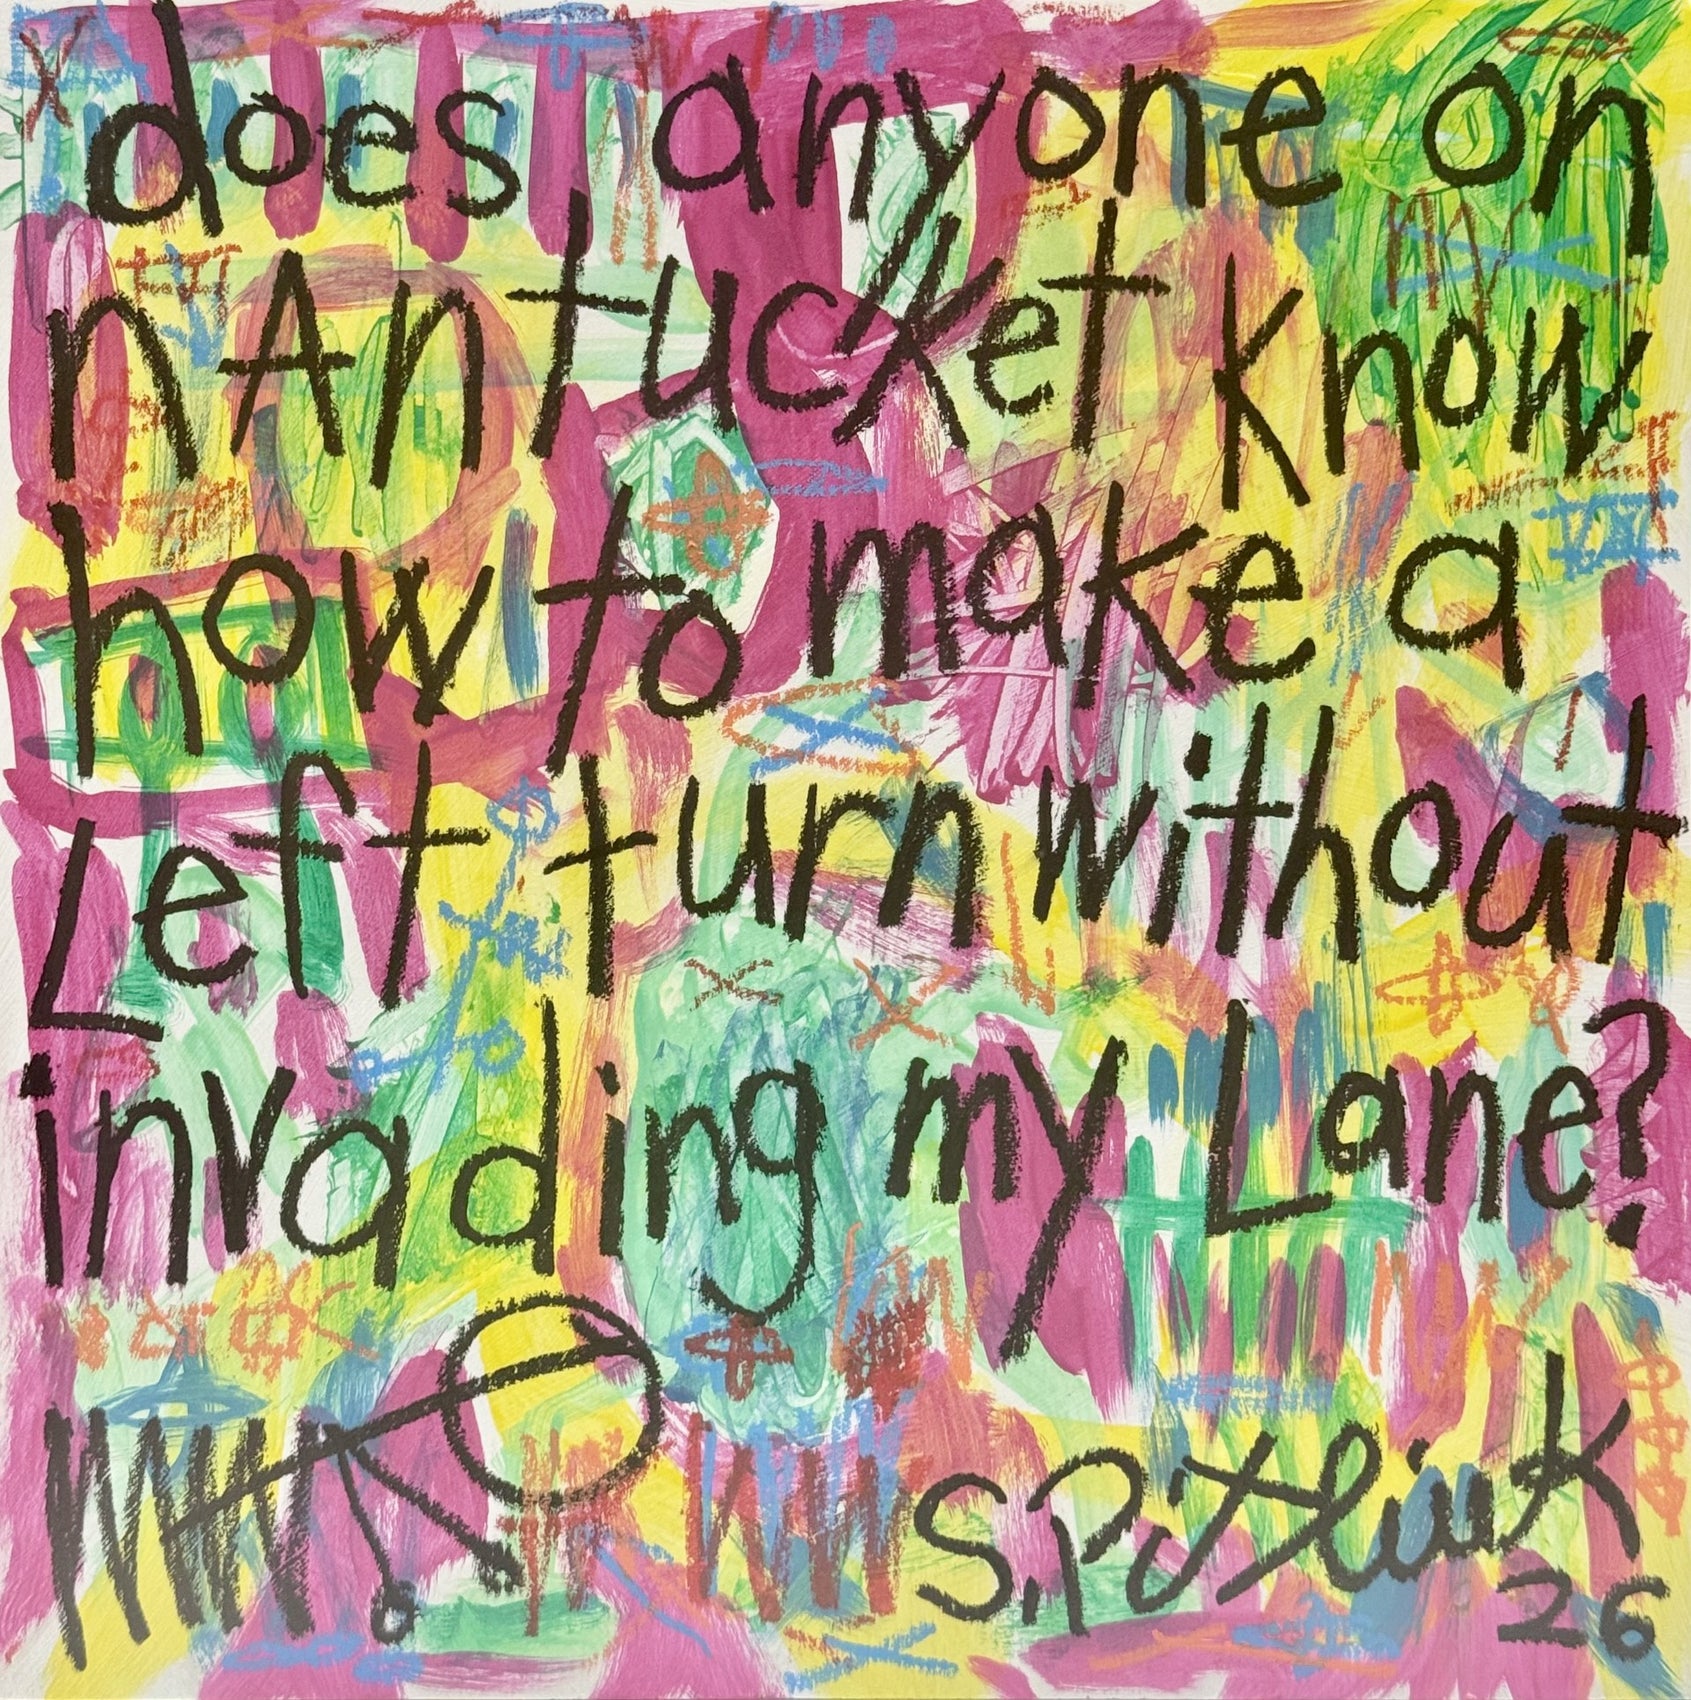 does anyone on
nAntucket know
how to make a
Left turn without
invading my Lane?
S. Pitliuk
26